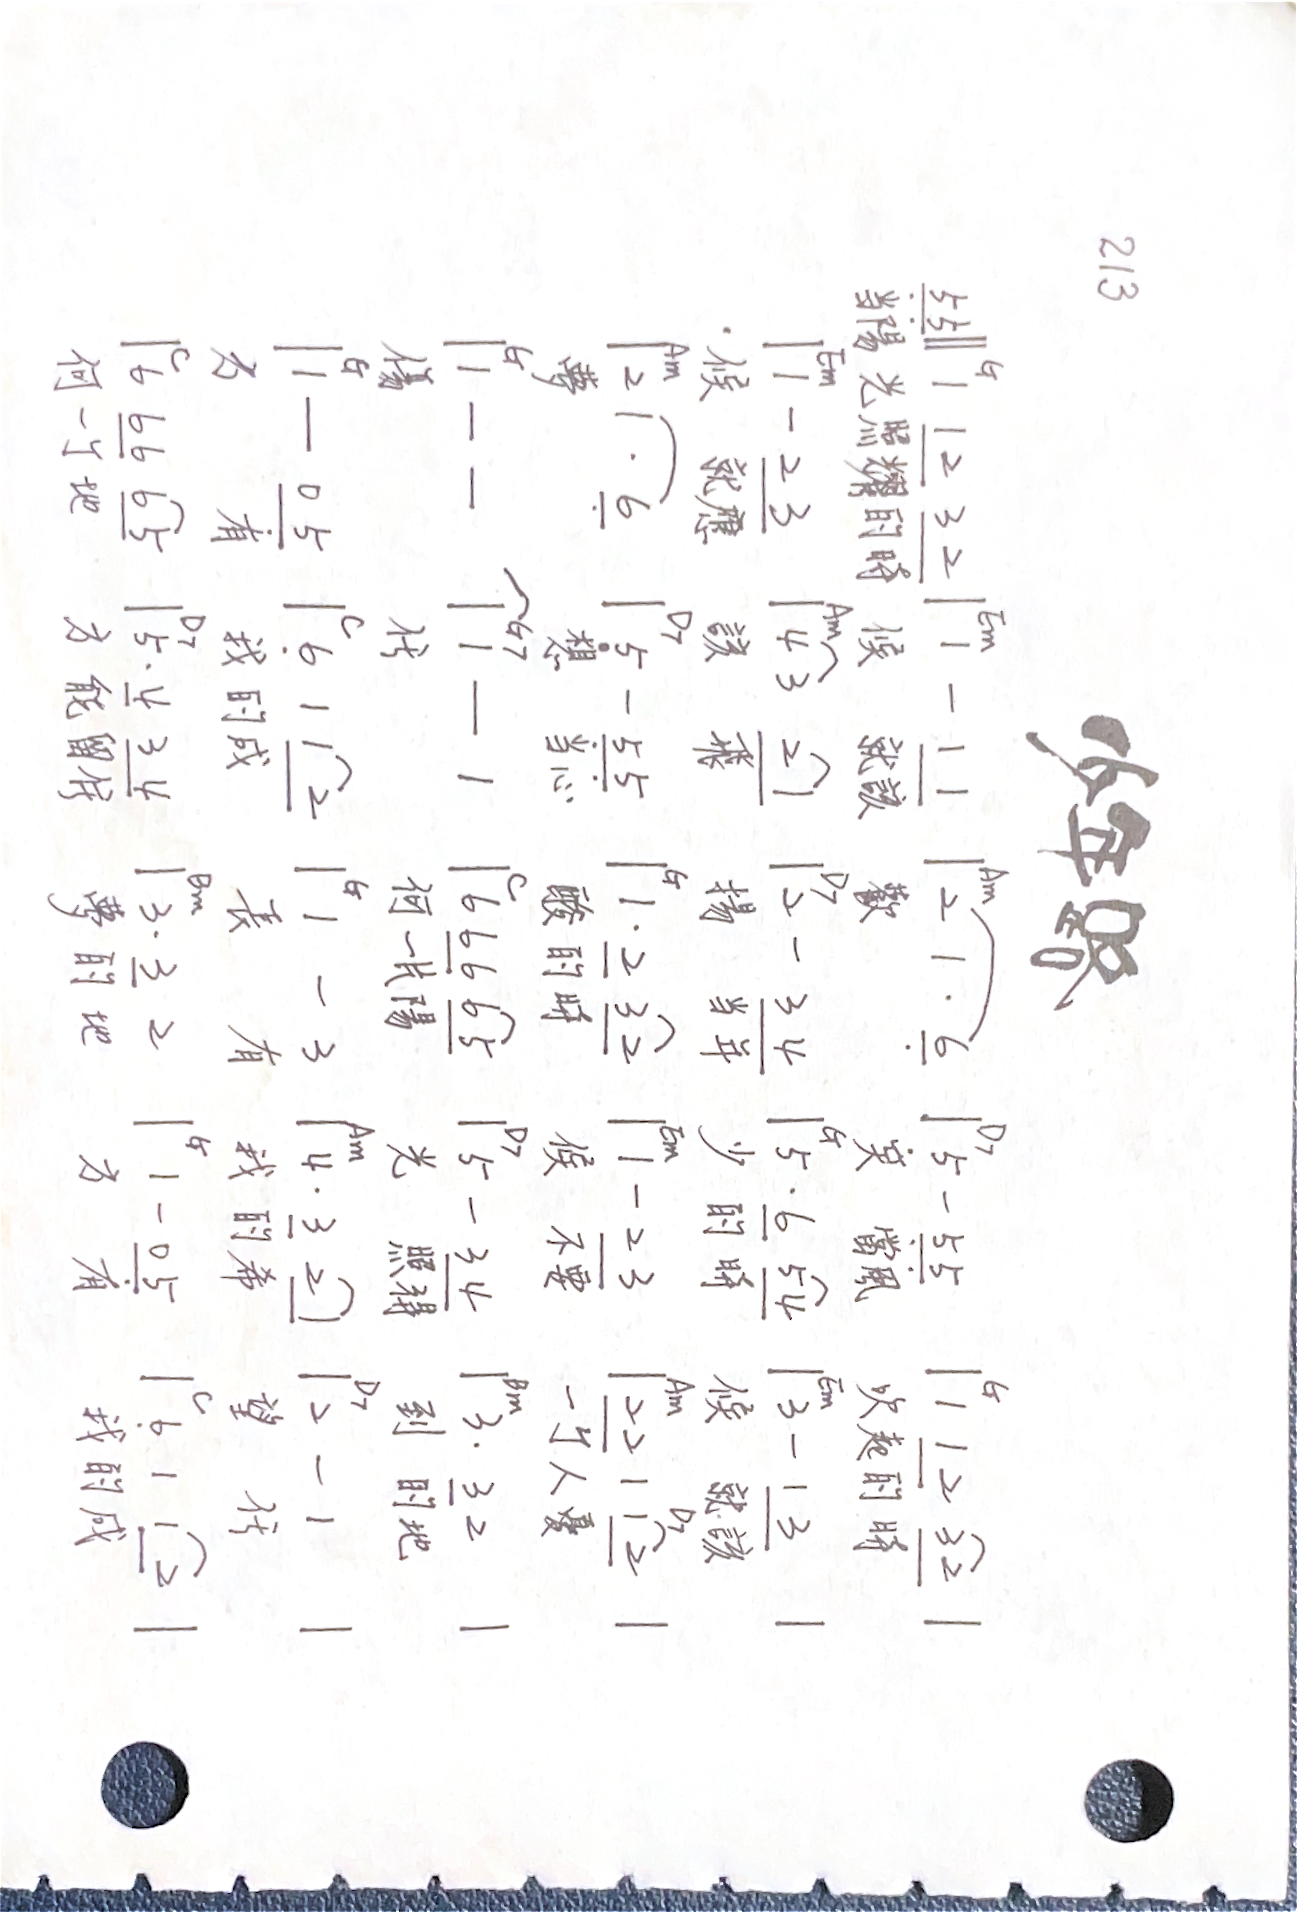 213
少年路
G Em Am D7 G
55‖1 12 32|1 - 11|2 1· 6|5 - 55|1 12 32|
当陽光照耀的時候 就該歡 笑 當風吹起的時
Em Am D7 G Em
|1 - 23|43 21|2 - 34|5·6 54|3 - 13|
候 就應該 飛揚 当年少的時候 就該
Am D7 G Em Am D7
|2 1· 6|5 - 55|1·2 32|1 - 23|22 1 12|
夢 想 当心酸的時候 不要一个人憂
G G7 C D7 Bm
|1 — —|1 — 1|6 66 65|5 - 34|3· 32|
傷 任何一片陽光 照得到的地
G C G Am D7
|1 — 05|6 1 12|1 - 3|4·3 21|2 - 1|
方 有我的成長 有我的希望 任
C D7 Bm G C
|6 66 65|5·4 34|3·3 2|1 - 05|6 1 12|
何一个地方能留住夢的地方 有我的成